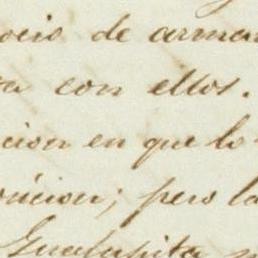 ocio de arma
con ellos.
cion en que lo
; pero la
Guadalupita